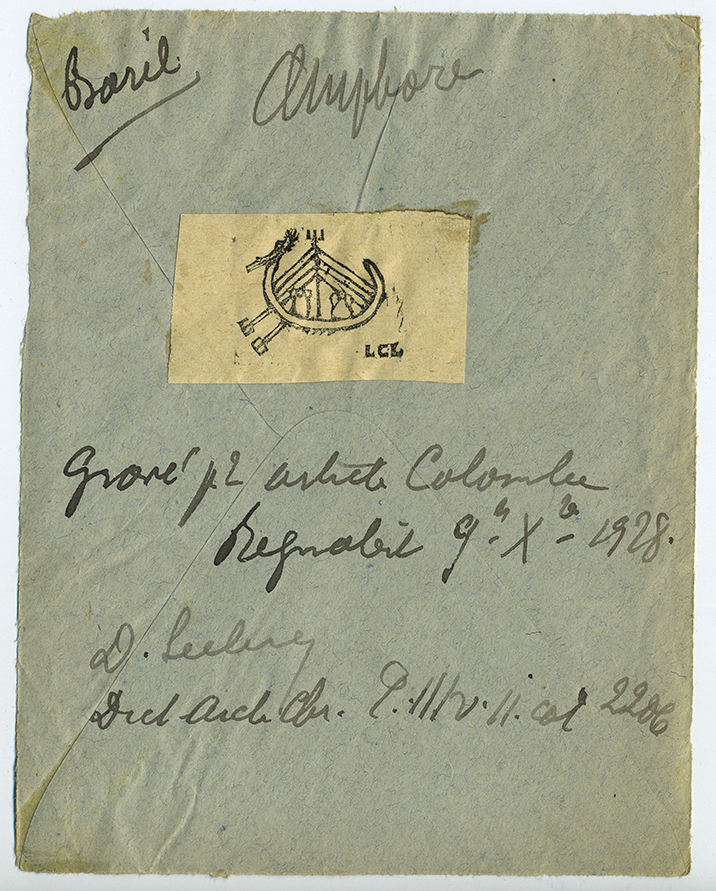 Baril
Amphore
LCL
Gravé pr article Colombe
Regnabit 9bre Xbre 1928.
D. Leclercq
Dict Arch Chr. T. III v. II. col 2206